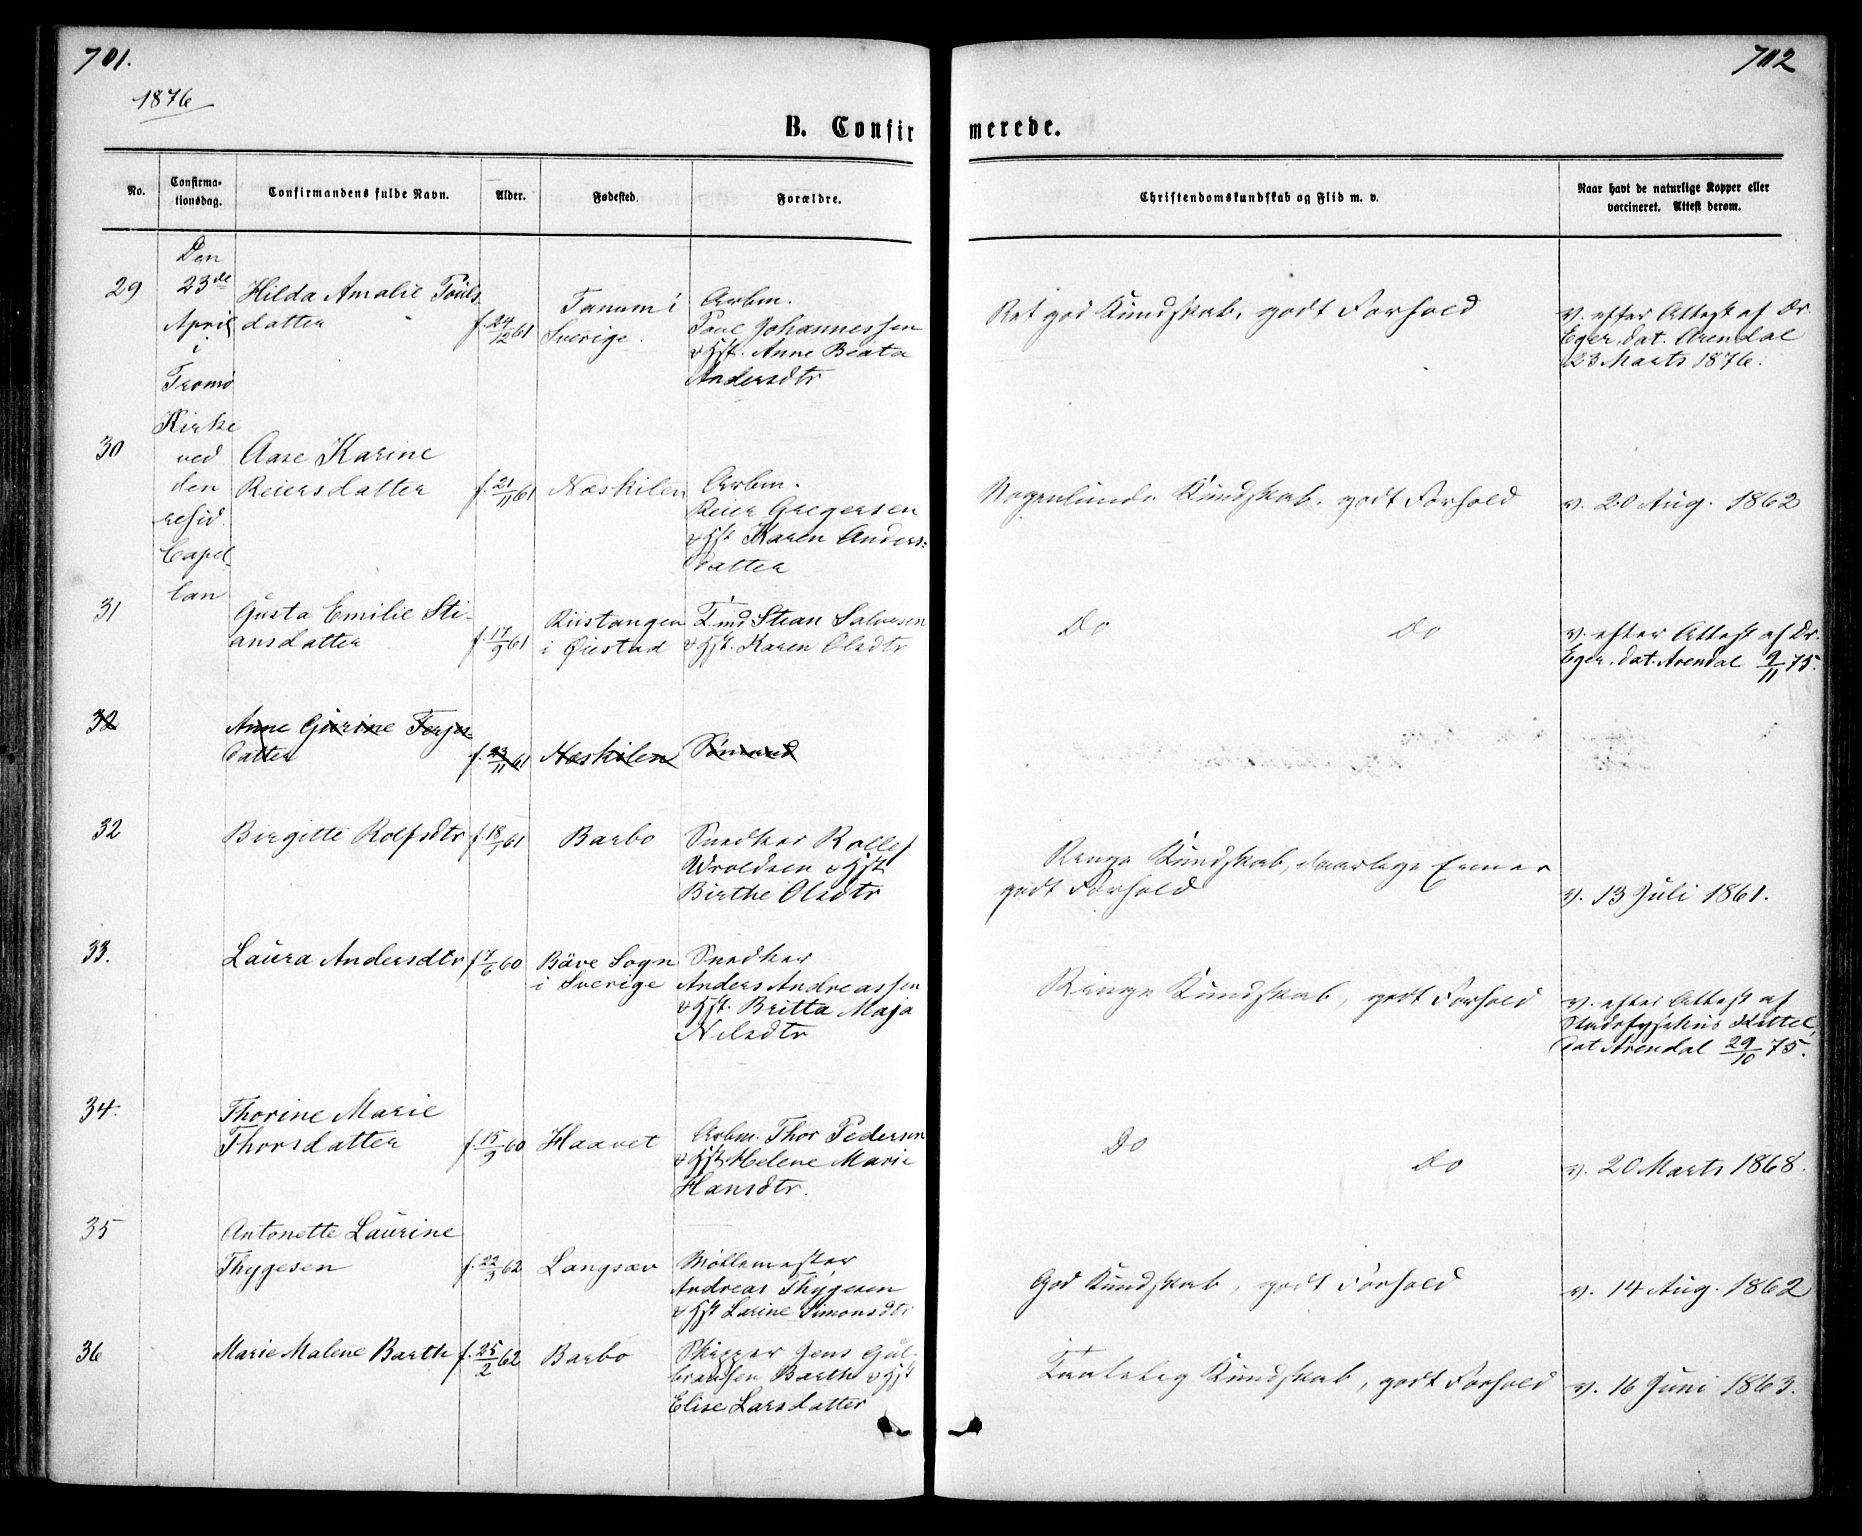 701.
702
1876
B. Confirmerede.
No.
Confirma-
tionsdag.
Confirmandens fulde Navn.
Alder.
Fødested.
Forældre.
Christendomskundskab og Flid m. v.
Naar havt de naturlige Kopper eller
vaccineret. Attest derom.
Den
23de
April
i
Tromø
Kirke
ved
den
resid.
Capel-
lan
29
Hilda Amalie Pouls
datter
f. 24/12 61
Tanum i
Sverige.
Arbm.
Poul Johannessen
& Hst. Anne Beata
Andersdtr
Ret god Kundskab, godt Forhold
v. efter Attest af Dr.
Eger, dat. Arendal
23 Marts 1876.
30
Aase Karine
Reiersdatter
f. 21/11 61
Neskilen
Arbm.
Reier Gregersen
& Hst Karen Anders-
datter
Nogenlunde Kundskab, godt Forhold
v. 20 Aug. 1862
31
Gusta Emilie Sti-
ansdatter
f. 17/9 61
Riistangen
i Øiestad
Tmd Stian Salvesen
& Hst. Karen Olsdtr
Do
Do
v. efter Attest af Dr.
Eger, dat. Arendal 9/11 75.
32
Anne Gurine Terjes
datter
f. 23/11 61
Neskilen
Sømand
32
Birgitte Rolfsdtr
f. 18/1 61
Barbo
Snedker Rollef
Wroldsen & Hst
Birthe Olsdtr
Ringe Kundskab, daarlige Evner
godt Forhold
v. 13 Juli 1861.
33.
Laura Andersdtr
f 7/6 60
Bäve Sogn
i Sverige
Snedker
Anders Andreassen
& Hst. Britta Maja
Nilsdtr
Ringe Kundskab, godt Forhold
v. efter Attest af
Stadsfysikus Kittel,
dat Arendal 29/10 75.
34.
Thorine Marie
Thorsdatter
f. 15/9 60
Haavet
Arbm. Thor Pedersen
& Hst. Helene Marie
Hansdtr.
Do
Do
v. 20 Marts 1868.
35
Antonette Laurine
Thygesen
f. 22/3 62
Langsæv
Møllemester
Andreas Thygesen
& Hst Larine Simonsdtr
God Kundskab, godt Forhold
v. 14 Aug. 1862
36
Marie Malene Barth
f. 25/2 62
Barbo
Skipper Jens Gul-
brandsen Barth & Hst
Elise Larsdatter
Taalelig Kundskab, godt Forhold
v. 16 Juni 1863.